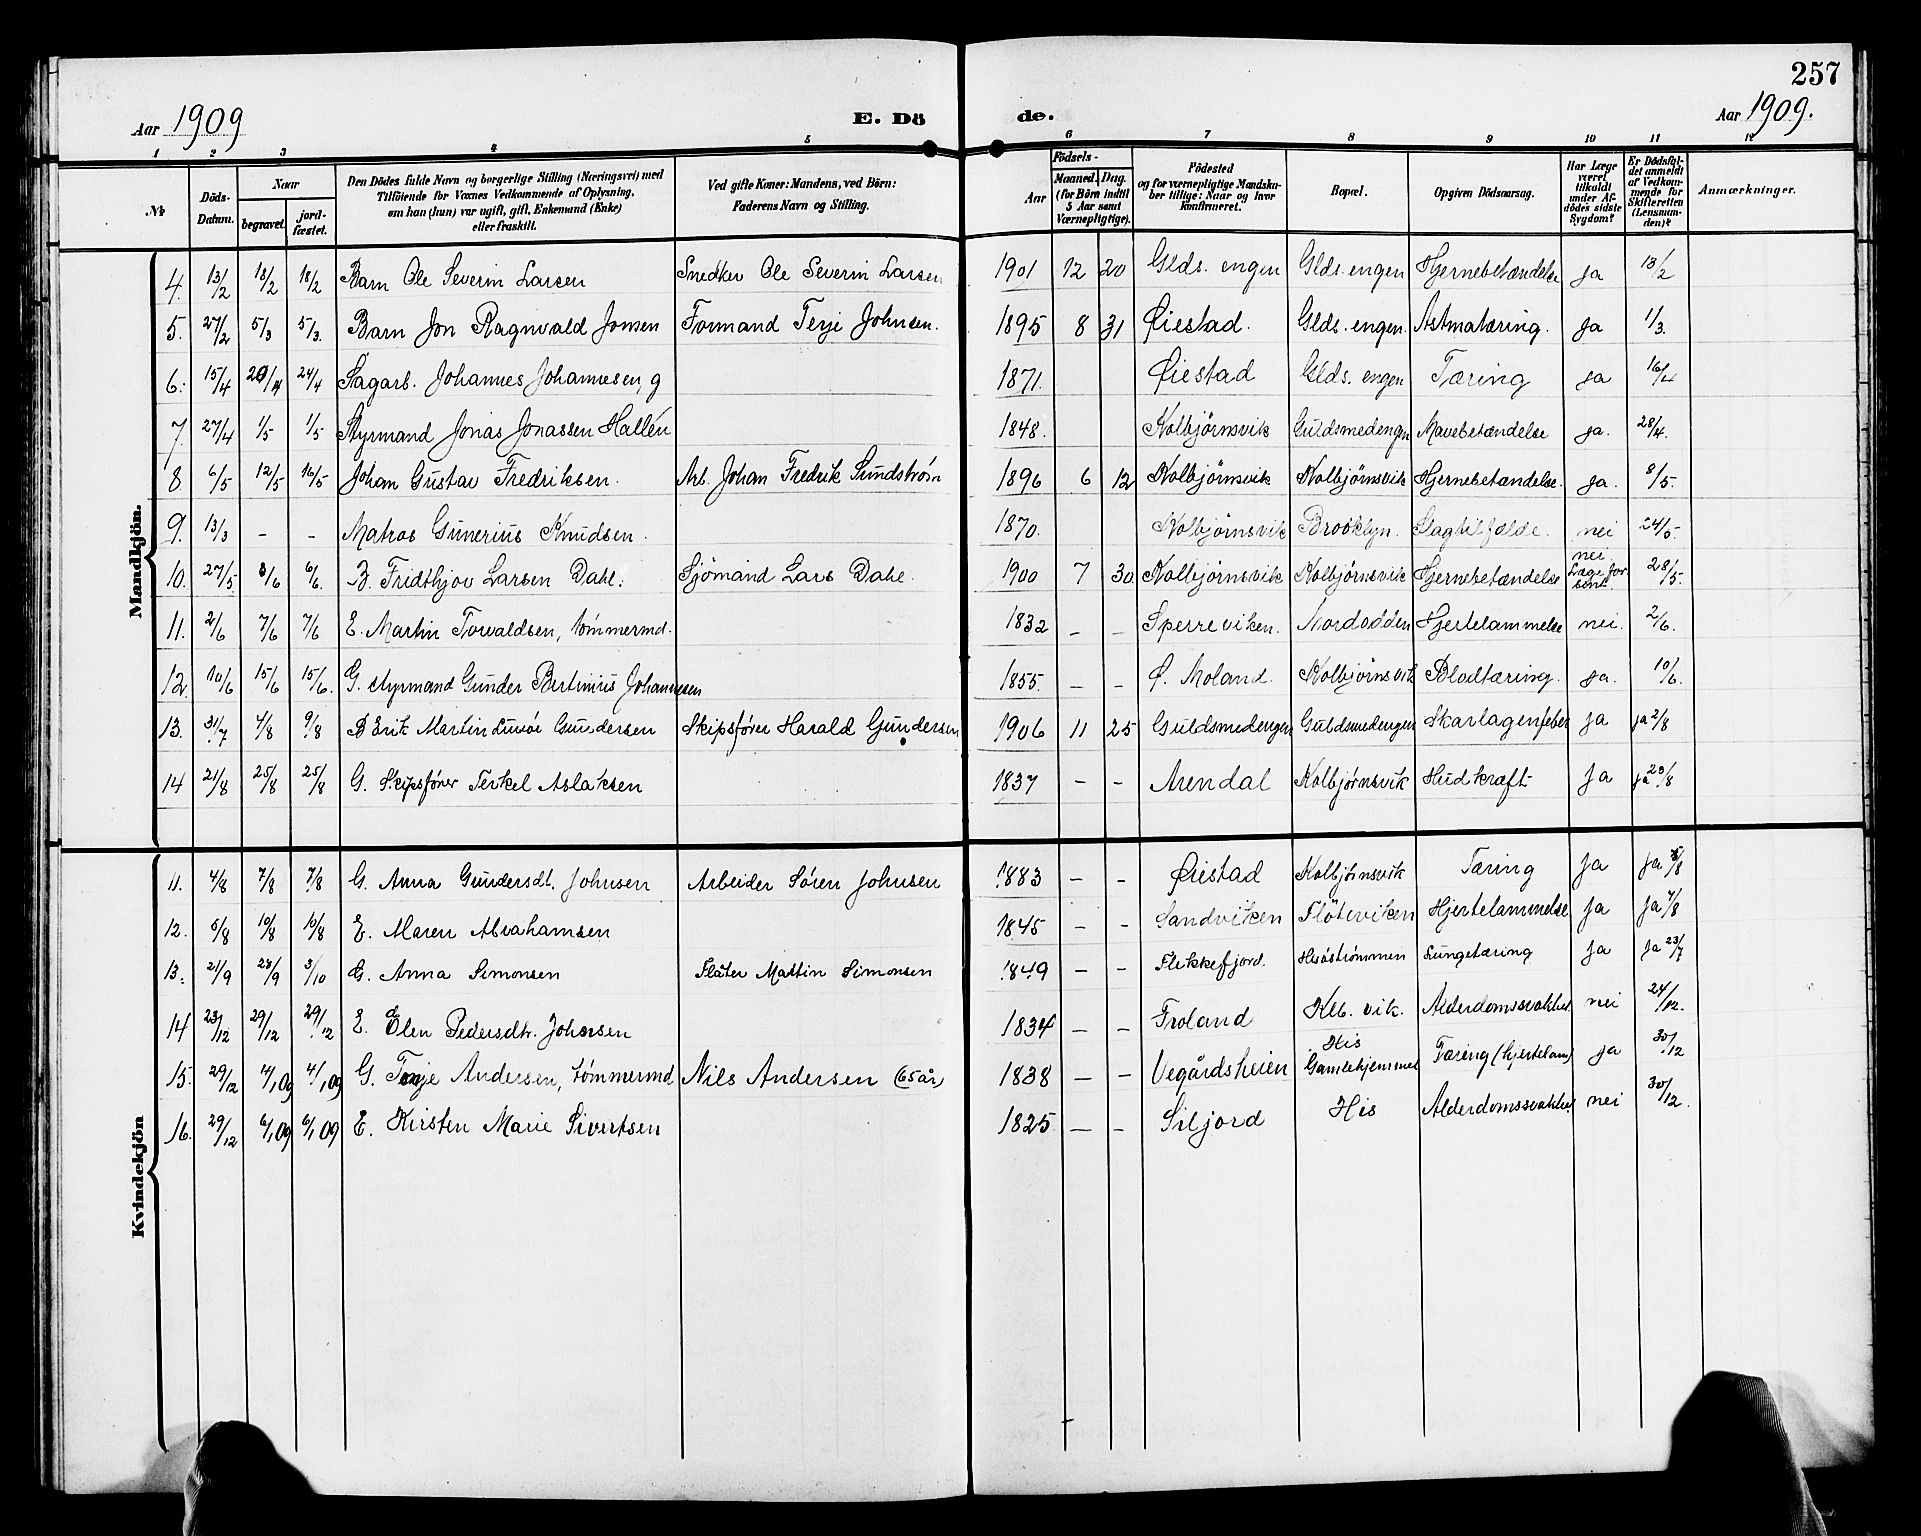 257
Aar 1909 E. Dö de. Aar 1909.
1 2 3 4 5 6 7 8 9 10 11 12
No. Döds-Datum. Naar begravet. jord-fæstet. Den Dödes fulde Navn og borgerlige Stilling (Næringsvei) med Tilföiende for Voxnes Vedkommende af Oplysning, om han (hun) var ugift, gift, Enkemand (Enke) eller fraskilt. Ved gifte Koner: Mandens, ved Börn: Faderens Navn og Stilling. Födsels- Aar Maaned. Dag. (for Börn indtil 5 Aar samt Værnepligtige). Födested og for værnepligtige Mandskaber tillige: Naar og hvor konfirmeret. Bopæl. Opgiven Dödsaarsag. Har Læge været tilkaldt under Afdödes sidste Sygdom? Er Dödsfaldet anmeldt af Vedkommende for Skifteretten (Lensmanden)? Anmærkninger.
Mandkjön.
4. 13/2 18/2 18/2 Barn Ole Severin Larsen Snedker Ole Severin Larsen 1901 12 20 Glds. engen Glds. engen Hjernebetændelse ja 13/2
5. 27/2 5/3 5/3. Barn Jon Ragnvald Jonsen Formand Terje Johnsen. 1895 8 31 Öiestad. Glds. engen. Astmatæring. ja 1/3.
6. 15/4 20/4 24/4 Sagarb. Johannes Johannesen, g 1871. Öiestad Glds. engen Tæring ja 16/4
7. 27/4 1/5 1/5 Styrmand Jonas Jonassen Hallén 1848. Kolbjörnsvik Guldsmedengen Mavebetændelse ja. 28/4.
8 6/5 12/5 16/5 Johan Gustav Fredriksen. Arb. Johan Fredrik Sundström 1896 6 12 Kolbjörnsvik Kolbjörnsvik Hjernebetændelse. ja. 8/5.
9. 13/3 - - Matros Gunerius Knudsen. 1870. Kolbjörnsvik Brooklyn. Slagtilfælde. nei 24/5.
10. 27/5 3/6 6/6. B. Fridthjov Larsen Dahl. Sjömand Lars Dahl 1900 7 30 Kolbjörnsvik Kolbjörnsvik Hjernebetændelse nei 28/5.
11. 2/6 7/6 7/6 E. Martin Torvaldsen, tömmermd. 1832 - - Sperreviken. Nordodden Hjertelammelse nei. 2/6.
12. 10/6 15/6 15/6. G. styrmand Gunder Bertinius Johannesen 1855. - - Ö. Moland. Kolbjörnsvik Blodtæring. ja. 10/6.
13. 31/7 4/8 9/8 B Erik Martin Gundersen Skipsfører Harald Gundersen 1906 11 25 Guldsmedengen Guldsmedengen Skarlagenfeber ja ja 2/8
14 21/8 25/8 25/8 G. Skipsfører Terkel Aslaksen 1837 - - Arendal Kolbjørnsvik Hudkræft Ja ja 23/8
Kvindekjön
11. 4/8 7/8 7/8 G. Anna Gundersdt. Johnsen Arbeider Søren Johnsen 1883 - - Øiestad Kolbjørnsvik Tæring Ja Ja 5/8
12. 5/8 10/8 10/8 E. Maren Abrahamsen 1845 - - Sandviken Flöteviken Hjertelammelse Ja Ja 7/8
13. 21/9 28/9 3/10 G. Anna Simonsen Fløter Martin Simonsen 1849 - - Flekkefjord. Hisöströmmen Lungetæring Ja Ja 23/7
14 23/12 29/12 29/12 E. Elen Pedersdtr. Johnsen 1834 - - Froland Klb. vik. Alderdomssvakhet nei 24/12.
15. 29/12 4/1 09 4/1 09 G. Terje Andersen, tömmermd Nils Andersen (65 år) 1838 - - Vegårdsheien His Gamlehjemmet Tæring (hjertelam) ja 30/12
16. 29/12 6/1 09 6/1 09 E. Kirsten Marie Sivertsen 1825 - - Siljord His Alderdomssvakhet nei 30/12.